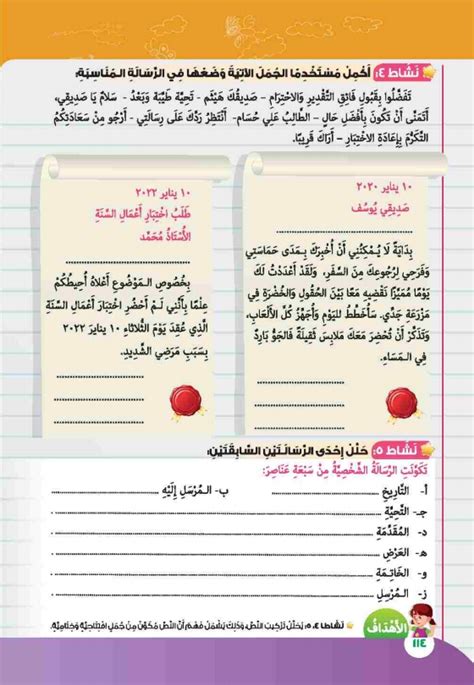 نَشَاط ٤: أَكْمِلْ مُسْتَخْدِمًا الجُمَلَ الآتِيَةَ وَضَعْهَا فِي الرِّسَالَةِ الْمُنَاسِبَةِ:
تَفَضَّلُوا بِقَبُولِ فَائِقِ التَّقْدِيرِ وَالاحْتِرَامِ – صَدِيقُكَ هَيْثَم - تَحِيَّةً طَيِّبَةً وَبَعْدُ - سَلَامٌ يَا صَدِيقِي،
أَتَمَنَّى أَنْ تَكُونَ بِأَفْضَلِ حَالٍ – الطَّالِبُ عَلِي حُسَام- أَنْتَظِرُ رَدَّكَ عَلَى رِسَالَتِي - أَرْجُو مِنْ سَعَادَتِكُمُ
التَّكَرُّمَ بِإِعَادَةِ الِاخْتِبَارِ – أَرَاكَ قَرِيبًا.
١٠ يناير ٢٠٢٠
صَدِيقِي يُوسُف
بِدَايَةً لَا يُمْكِنُنِي أَنْ أُخْبِرَكَ بِمَدَى حَمَاسَتِي
وَفَرَحِي لِرُجُوعِكَ مِنَ السَّفَرِ، وَلَقَدْ أَعْدَدْتُ لَكَ
يَوْمًا مُمَيَّزًا نَقْضِيهِ مَعًا بَيْنَ الحُقُولِ وَالخُضْرَةِ فِي
مَزْرَعَةِ جَدِّي، سَأُخَطِّطُ لِلْيَوْمِ وَأُجَهِّزُ كُلَّ الأَلْعَابِ،
وَتَذَكَّرْ أَنْ تُحْضِرَ مَعَكَ مَلَابِسَ ثَقِيلَةً فَالجَوُّ بَارِدٌ
فِي الـمَسَاءِ.
١٠ يناير ٢٠٢٢
طَلَبُ اخْتِبَارِ أَعْمَالِ السَّنَةِ
الأُسْتَاذُ مُحَمَّد
بِخُصُوصِ الـمَوْضُوعِ أَعْلَاهُ أُحِيطُكُمْ
عِلْمًا بِأَنَّنِي لَمْ أَحْضُرِ اخْتِبَارَ أَعْمَالِ السَّنَةِ
الَّذِي عُقِدَ يَوْمَ الثُّلَاثَاءِ ١٠ يناير ٢٠٢٢
بِسَبَبِ مَرَضِي الشَّدِيدِ.
نَشَاط ٥: حَلِّلْ إِحْدَى الرِّسَالَتَيْنِ السَّابِقَتَيْنِ:
تَكَوَّنَتِ الرِّسَالَةُ الشَّخْصِيَّةُ مِنْ سَبْعَةِ عَنَاصِرَ:
أ- التَّارِيخِ
ب- الـمُرْسَلِ إِلَيْهِ
جـ- التَّحِيَّةِ
د- الـمُقَدِّمَةِ
هـ- العَرْضِ
و- الخَاتِمَةِ
ز- الـمُرْسِلِ
الأَهْدَافُ
نَشَاطا ٤، ٥: يُحَلِّلُ تَرْكِيبَ النَّصِّ، وَذَلِكَ يَشْمَلُ فَهْمَ أَنَّ النَّصَّ مُكَوَّنٌ مِنْ جُمَلٍ افْتِتَاحِيَّةٍ وَخِتَامِيَّةٍ.
١١٤